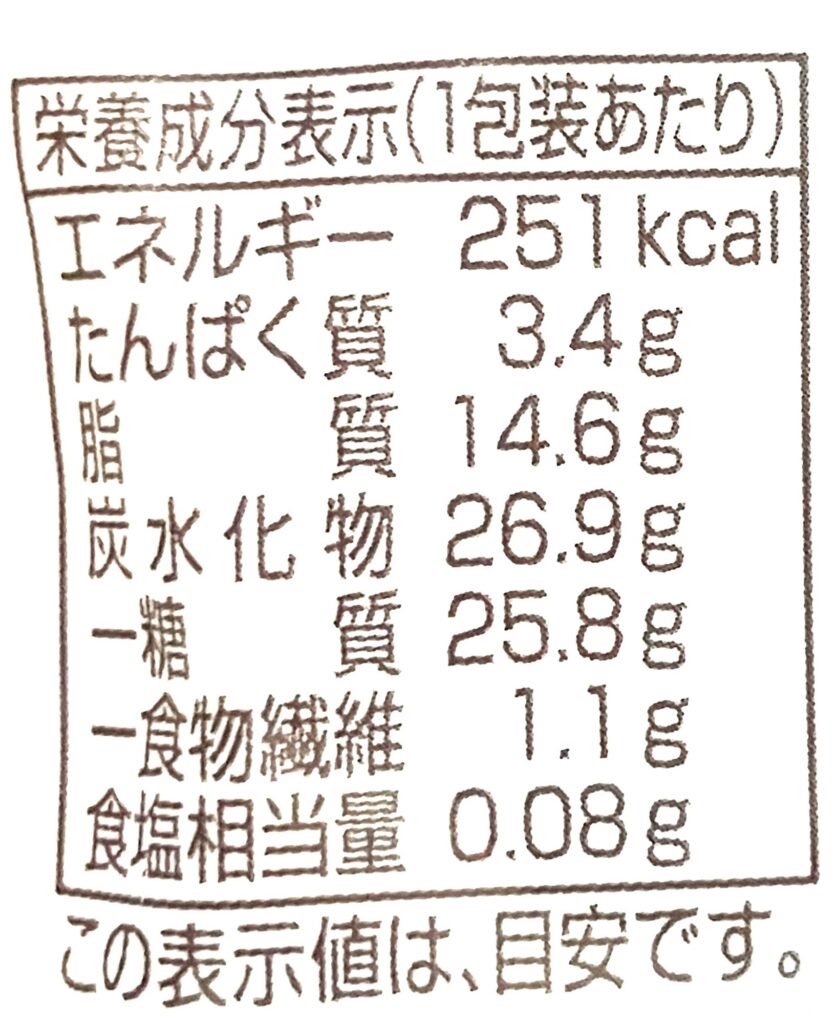 栄養成分表示(1包装あたり)
エネルギー 251kcal
たんぱく質 3.4g
脂質 14.6g
炭水化物 26.9g
ー糖質 25.8g
ー食物繊維 1.1g
食塩相当量 0.08g
この表示値は、目安です。